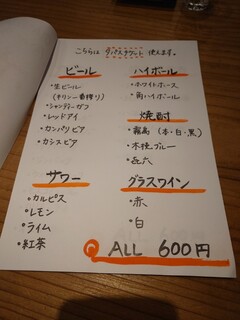 こちらは リパスチケット 使えます。
ビール
・生ビール
(キリン一番搾り)
・シャンディーガフ
・レッドアイ
・カンパリビア
・カシスビア
サワー
・カルピス
・レモン
・ライム
・紅茶
ハイボール
・ホワイトホース
・角ハイボール
焼酎
・霧島(本・白・黒)
・木挽ブルー
・㐂六
グラスワイン
・赤
・白
ALL 600円